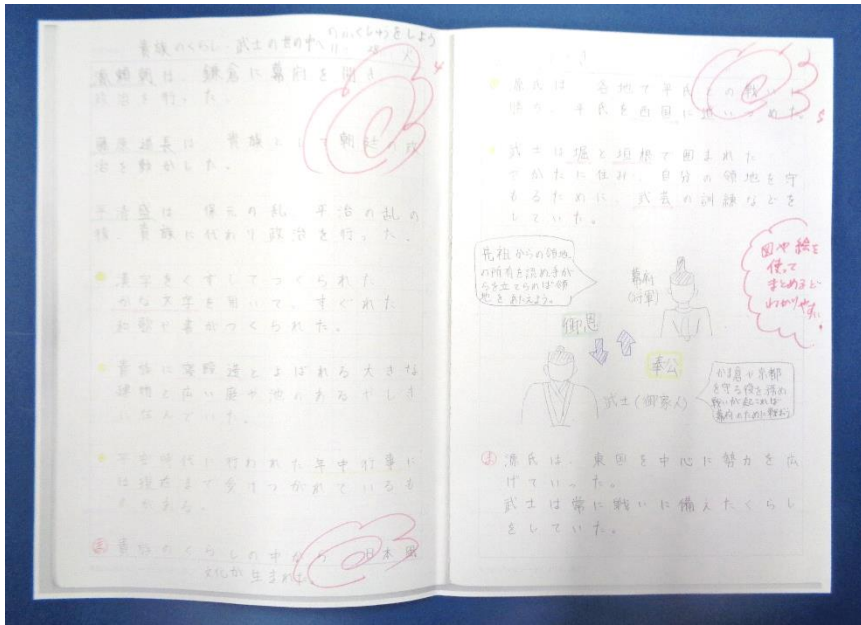 貴族のくらし・武士の世の中へ ふくしゅうをしよう
源頼朝は、鎌倉に幕府を開き、
政治を行った。
藤原道長は、貴族として朝廷の政
治を動かした。
平清盛は、保元の乱、平治の乱の
後、貴族に代わり政治を行った。
漢字をくずしてつくられた
かな文字を用いて、すぐれた
和歌や書がつくられた。
貴族は寝殿造とよばれる大きな
建物と広い庭や池のあるやしき
にすんでいた。
平安時代に行われた年中行事に
は現在まで受けつがれているも
のがある。
ま 貴族のくらしの中から、日本風
文化が生まれた。
源氏は、各地で平氏との戦いに
勝ち、平氏を西国に追いつめた。
武士は堀と垣根で囲まれた
やかたに住み、自分の領地を守
もるために、武芸の訓練などを
していた。
図や絵を
使って
まとめると
わかりやすい!
先祖からの領地
の所有を認め手が
らを立てられば領
地をあたえよう。
幕府
(将軍)
御恩
奉公
武士(御家人)
かま倉や京都
を守る役を務め
戦いが起これば
幕府のために戦おう
ま 源氏は、東国を中心に勢力を広
げていった。
武士は常に戦いに備えたくらし
をしていた。